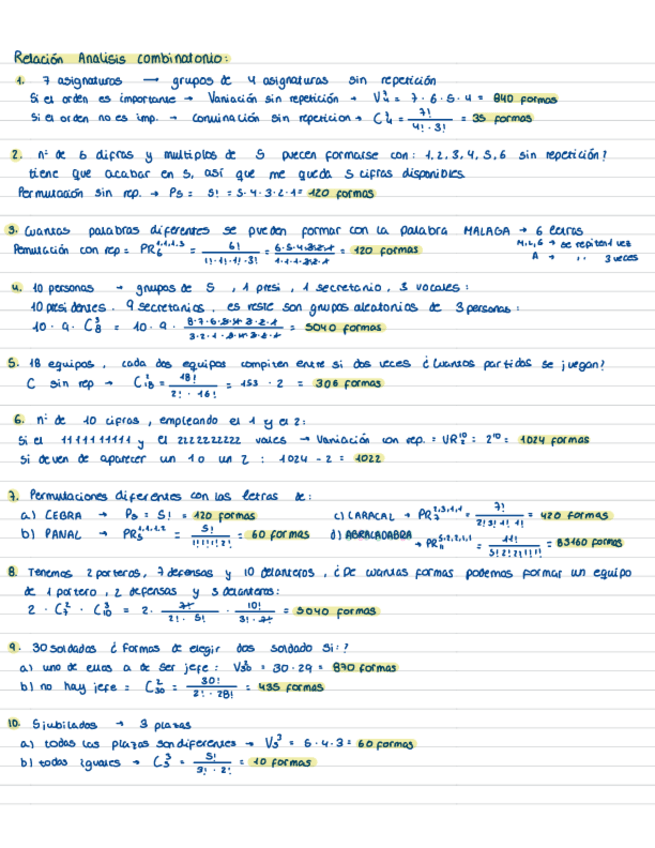 Relación Analisis combinatorio:
1. 7 asignaturas → grupos de 4 asignaturas sin repetición
Si el orden es importante → Variación sin repetición → V₄⁷ = 7·6·5·4 = 840 formas
Si el orden no es imp. → convinación sin repeticion → C₄⁷ = 7! / 4!·3! = 35 formas
2. nº de 6 difras y multiplos de 5 puecen formarse con: 1, 2, 3, 4, 5, 6 sin repetición?
tiene que acabar en 5, así que me queda 5 cifras disponibles.
Permutación sin rep. → P₅ = 5! = 5·4·3·2·1 = 120 formas
3. Cuantas palabras diferentes se pueden formar con la palabra MALAGA → 6 letras
Pemutación con rep = PR₆¹·¹·¹·³ = 6! / 1!·1!·1!·3! = 6·5·4·3·2·1 / 1·1·1·3·2·1 = 120 formas
M, L, G → se repiten 1 vez
A → ,, 3 veces
4. 10 personas → grupos de 5, 1 presi, 1 secretario, 3 vocales:
10 presidentes. 9 secretarios, es resto son grupos aleatorios de 3 personas:
10 · 9 · C₈³ = 10 · 9 · 8·7·6·5·4·3·2·1 / 3·2·1·5·4·3·2·1 = 5040 formas
5. 18 equipos, cada dos equipos compiten entre si dos veces ¿Cuantos partidos se juegan?
C sin rep → C₁₈² = 18! / 2!·16! = 153 · 2 = 306 formas
6. nº de 10 cifras, empleando el 1 y el 2:
Si el 1111111111 y el 2222222222 vales → Variación con rep. = VR₂¹⁰ = 2¹⁰ = 1024 formas
Si deven de aparecer un 1 o un 2 : 1024 - 2 = 1022
7. Permutaciones diferentes con las letras de:
a) CEBRA → P₅ = 5! = 120 formas
c) CARACAL → PR₇²·³·¹·¹ = 7! / 2!3!1!1! = 420 formas
b) PANAL → PR₅¹·¹·¹·² = 5! / 1!1!1!2! = 60 formas
d) ABRACADABRA → PR₁₁⁵·²·²·¹·¹ = 11! / 5!2!2!1!1! = 83160 formas
8. Tenemos 2 porteros, 7 defensas y 10 delanteros, ¿De cuantas formas podemos formar un equipo
de 1 portero, 2 defensas y 3 delanteros:
2 · C₇² · C₁₀³ = 2 · 7! / 2!·5! · 10! / 3!·7! = 5040 formas
9. 30 soldados ¿ Formas de elegir dos soldado si:?
a) uno de ellos a de ser jefe: V₃₀² = 30·29 = 870 formas
b) no hay jefe = C₃₀² = 30! / 2!·28! = 435 formas
10. 5 jubilados → 3 plazas
a) todas las plazas son diferentes → V₅³ = 5·4·3 = 60 formas
b) todas iguales → C₅³ = 5! / 3!·2! = 10 formas